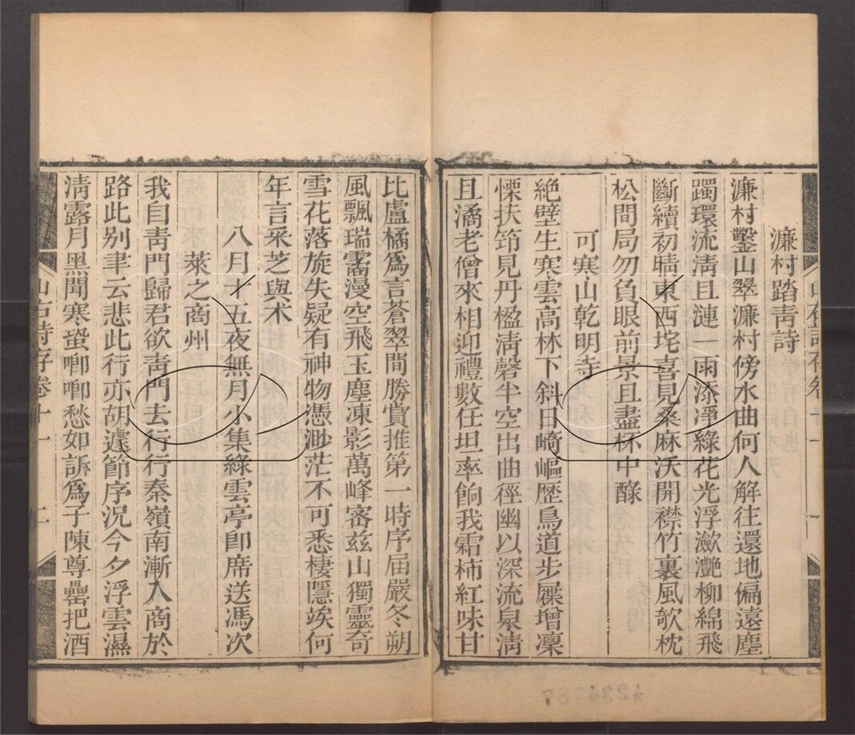 濂村踏青詩
濂村鑿山翠濂村傍水曲何人解往還地偏遠塵
躅環流清且漣一雨添凈綠花光浮瀲灩柳綿飛
斷續初晴東西垞喜見桑麻沃開襟竹裏風欹枕
松間局勿負眼前景且盡杯中醁
可寒山乾明寺
絶壁生寒雲高林下斜日崎嶇歷鳥道步屧增凜
慄扶筇見丹楹清磬半空出曲徑幽以深流泉淸
且潏老僧來相迎禮數任坦率餉我霜柿紅味甘
比盧橘爲言蒼翠間勝賞推第一時序届嚴冬朔
風飄瑞霱漫空飛玉塵凍影萬峰密兹山獨靈奇
雪花落旋失疑有神物憑渺茫不可悉棲隱竢何
年言采芝與术
八月十五夜無月小集綠雲亭卽席送馮次
萊之商州
我自靑門歸君欲靑門去行行秦嶺南漸入商於
路此别聿云悲此行亦胡遽節序況今夕浮雲濕
淸露月黑聞寒螀唧唧愁如訴爲子陳尊罍把酒
山右詩存卷十一
二